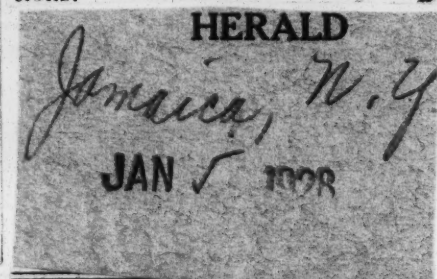 HERALD
Jamaica, N.Y
JAN 5 1928